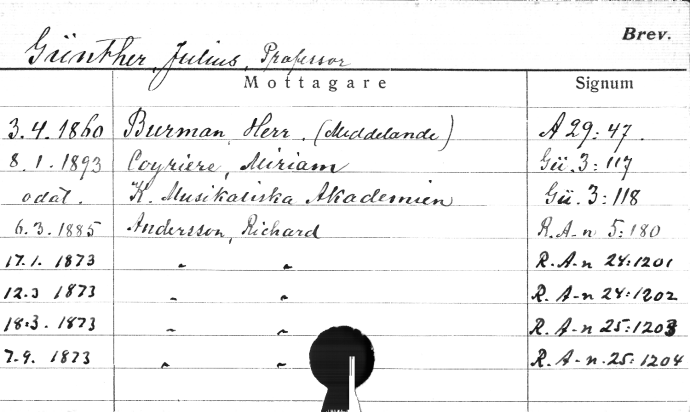 Brev.
Günther, Julius, Professor
Mottagare Signum
3.4.1860 Burman, Herr. (Meddelande) A 29:47.
8.1.1893 Coyriere, Miriam Gü.3:117
odat. K. Musikaliska Akademien Gü.3:118
6.3.1885 Andersson, Richard R.A-n 5:180
17.1. 1873 " " R.A-n 24:1201
12.3 1873 " " R.A-n 24:1202
18.3. 1873 " " R.A-n 25:1203
7.9. 1873 " " R.A-n.25:1204